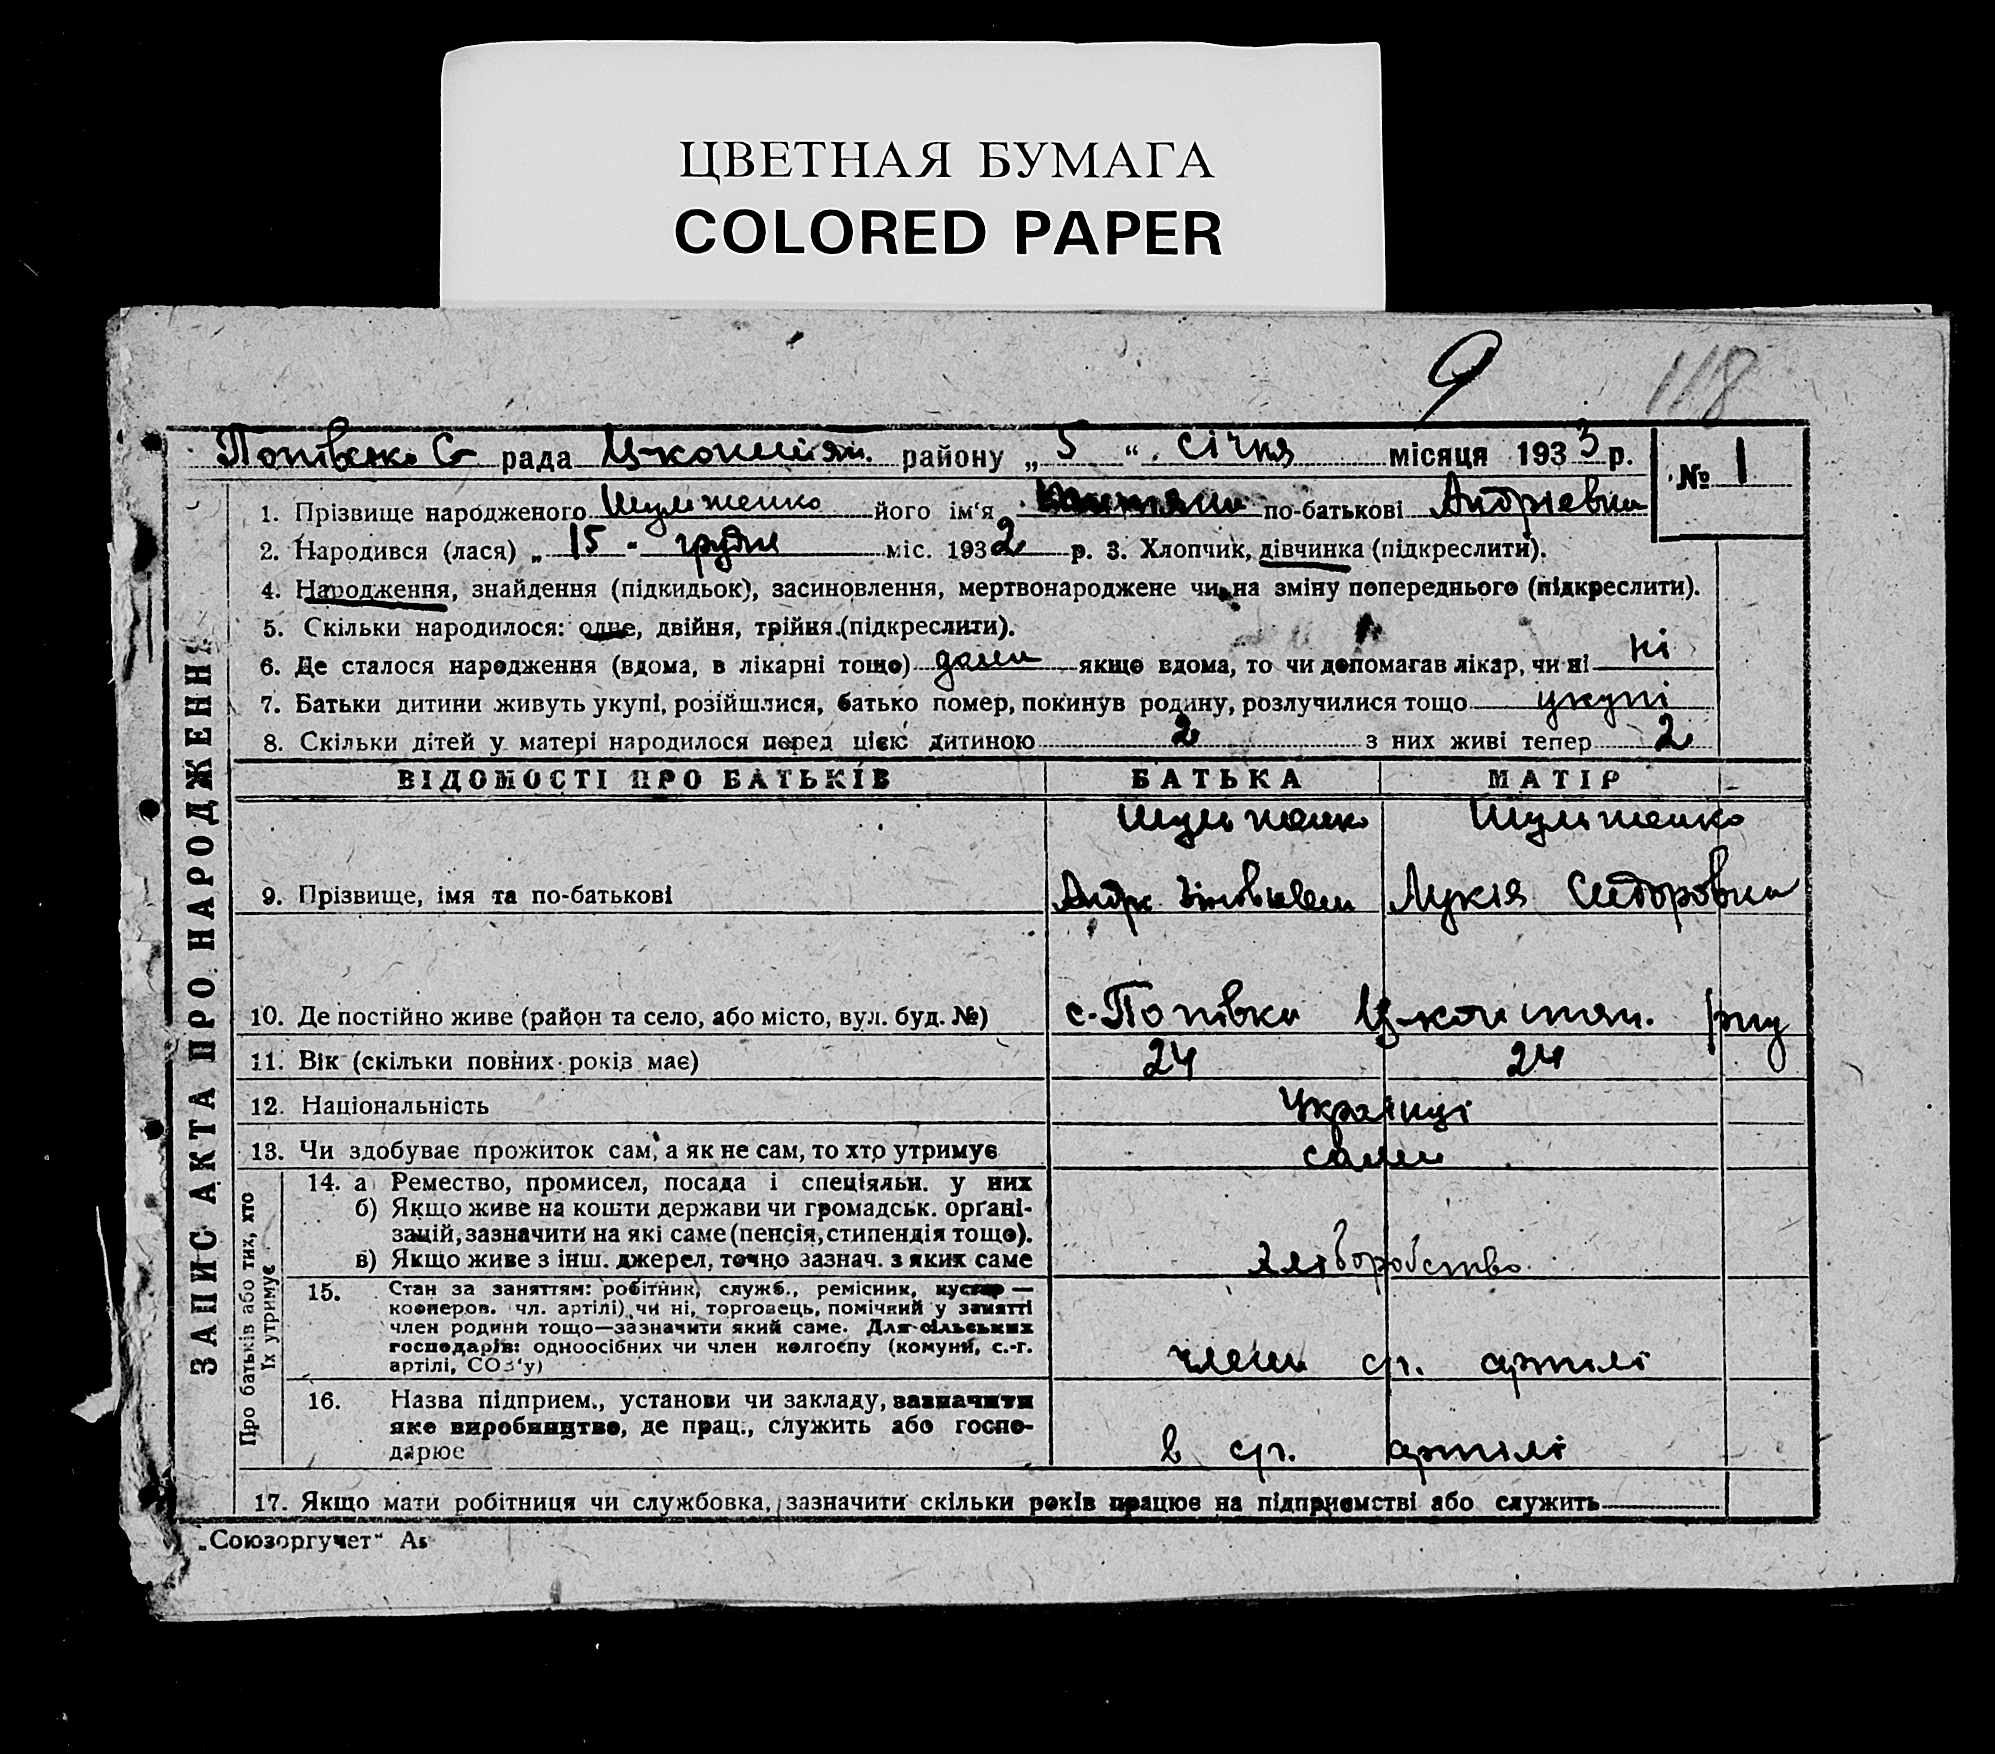 ЦВЕТНАЯ БУМАГА
COLORED PAPER
9
118
Попівська С рада району „ 5 “ січня місяця 1933 р. № 1
ЗАПИС АКТА ПРО НАРОДЖЕННЯ
1. Прізвище народженого Шульженко його ім‘я по-батькові Андріевна
2. Народився (лася) „ 15 “ грудня міс. 1932 р. 3. Хлопчик, дівчинка (підкреслити).
4. Народження, знайдення (підкидьок), засиновлення, мертвонароджене чи на зміну попереднього (підкреслити).
5. Скільки народилося: одне, двійня, трійня (підкреслити).
6. Де сталося народження (вдома, в лікарні тощо) дома якщо вдома, то чи допомагав лікар, чи ні ні
7. Батьки дитини живуть укупі, розійшлися, батько помер, покинув родину, розлучилися тощо укупі
8. Скільки дітей у матері народилося перед цією дитиною 2 з них живі тепер 2
ВІДОМОСТІ ПРО БАТЬКІВ БАТЬКА МАТІР
Шульженко Шульженко
9. Прізвище, імя та по-батькові Андр Лукія Сидоровна
10. Де постійно живе (район та село, або місто, вул. буд. №) с. Попівка р-ну
11. Вік (скільки повних років має) 24 24
12. Національність Українці
13. Чи здобуває прожиток сам, а як не сам, то хто утримує сами
Про батьків або тих, хто їх утримує
14. а Ремество, промисел, посада і спеціяльн. у них
б) Якщо живе на кошти держави чи громадськ. органі-
зацій, зазначити на які саме (пенсія, стипендія тощо).
в) Якщо живе з інш. джерел, точно зазнач. з яких саме хліборобство
15. Стан за заняттям: робітник, служб., ремісник, кустар —
кооперов. чл. артілі) чи ні, торговець, помічний у занятті
член родини тощо—зазначити який саме. Для сільських
господарів: одноосібних чи член колгоспу (комуни, с.-г.
артілі, СОЗ‘у) члени с.г. артілі
16. Назва підприєм., установи чи закладу, зазначити
яке виробництво, де прац., служить або госпо-
дарює в с.г. артілі
17. Якщо мати робітниця чи службовка, зазначити скільки років працює на підприємстві або служить
„Союзоргучет“